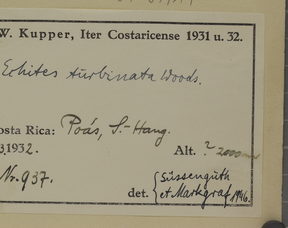 W. Kupper, Iter Costaricense 1931 u. 32.
Echites turbinata Woods.
osta Rica: Poás, S.-Hang.
3 1932. Alt. ? 2000 m
Nr. 937. Süssenguth
det. et Markgraf 1946.